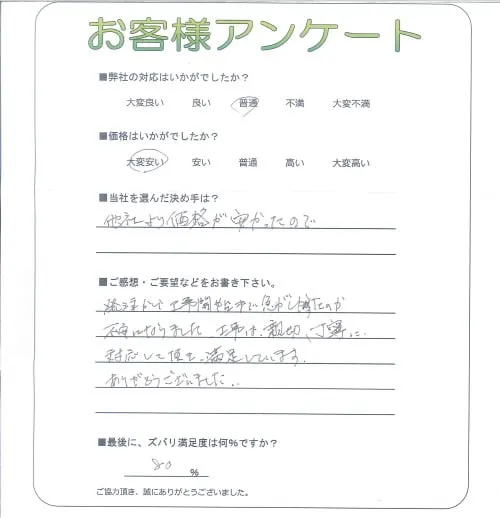 お客様アンケート
■弊社の対応はいかがでしたか？
大変良い 良い 普通 不満 大変不満
■価格はいかがでしたか？
大変安い 安い 普通 高い 大変高い
■当社を選んだ決め手は？
他社より価格が安かったので
■ご感想・ご要望などをお書き下さい。
工事
不安になりました 工事は、親切、丁寧に
対応して頂き、満足しています。
ありがとうございました。
■最後に、ズバリ満足度は何%ですか？
80 %
ご協力頂き、誠にありがとうございました。